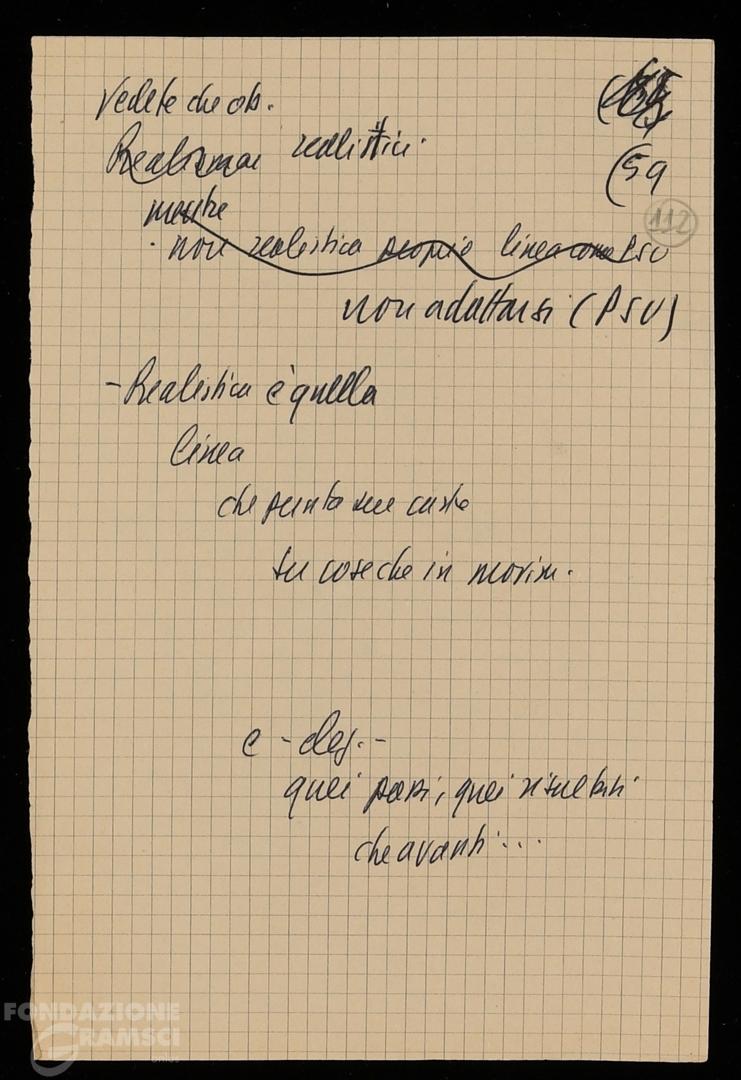 Vedete che ob.
(59
Realismo realistici.
112
mentre
non realistica proprio linea come PSU
non adattarsi (PSU)
- Realistica è quella
linea
che punta su
su cose che in movim.
e - des. -
quei passi, quei risultati
che avanti ...
FONDAZIONE
GRAMSCI
onlus